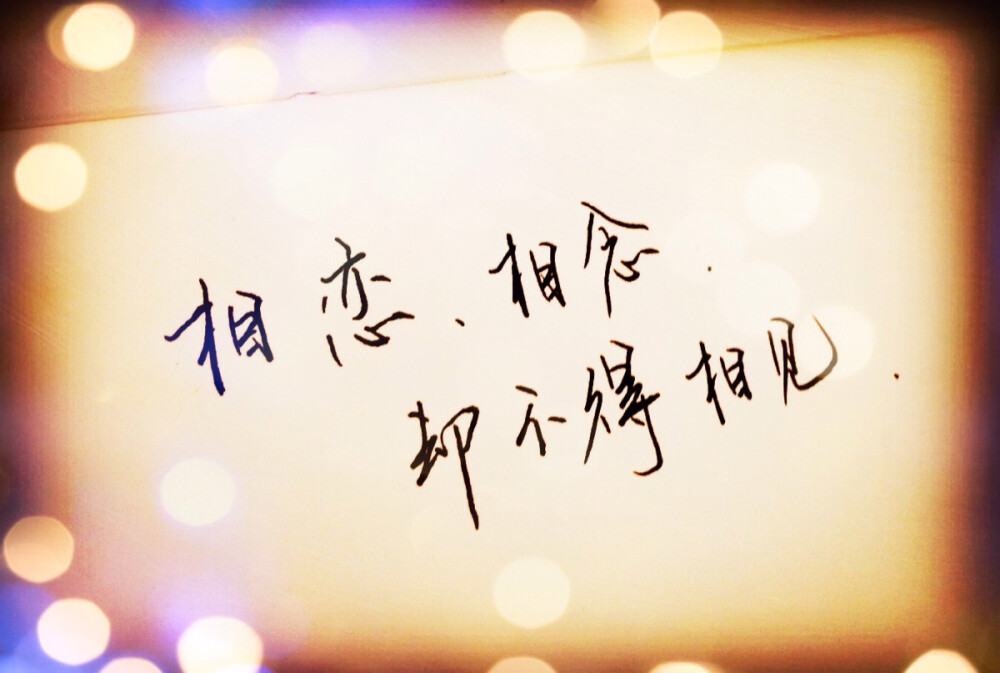 相恋、相念.
却不得相见.